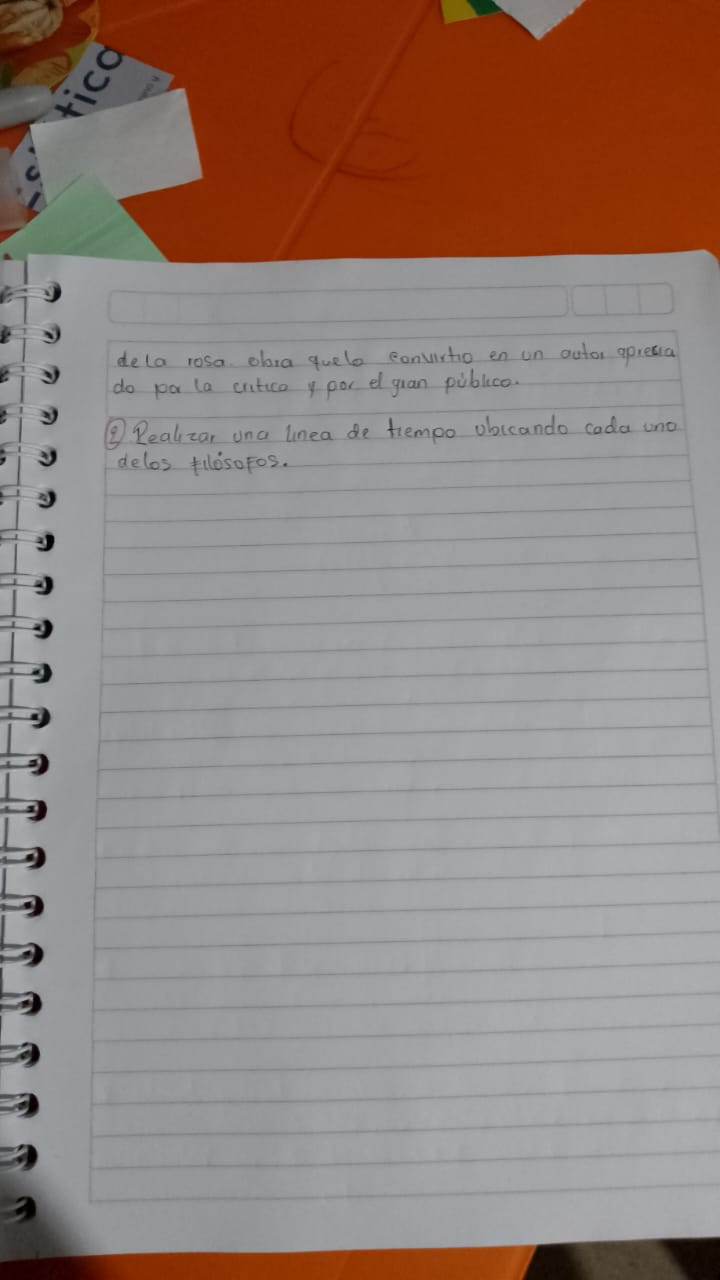 tica
dela rosa. obra quelo convirtio en un autor aprecia
do po la critica y por el gran público.
2 Realizar una linea de tiempo ubicando cada uno
delos filósofos.